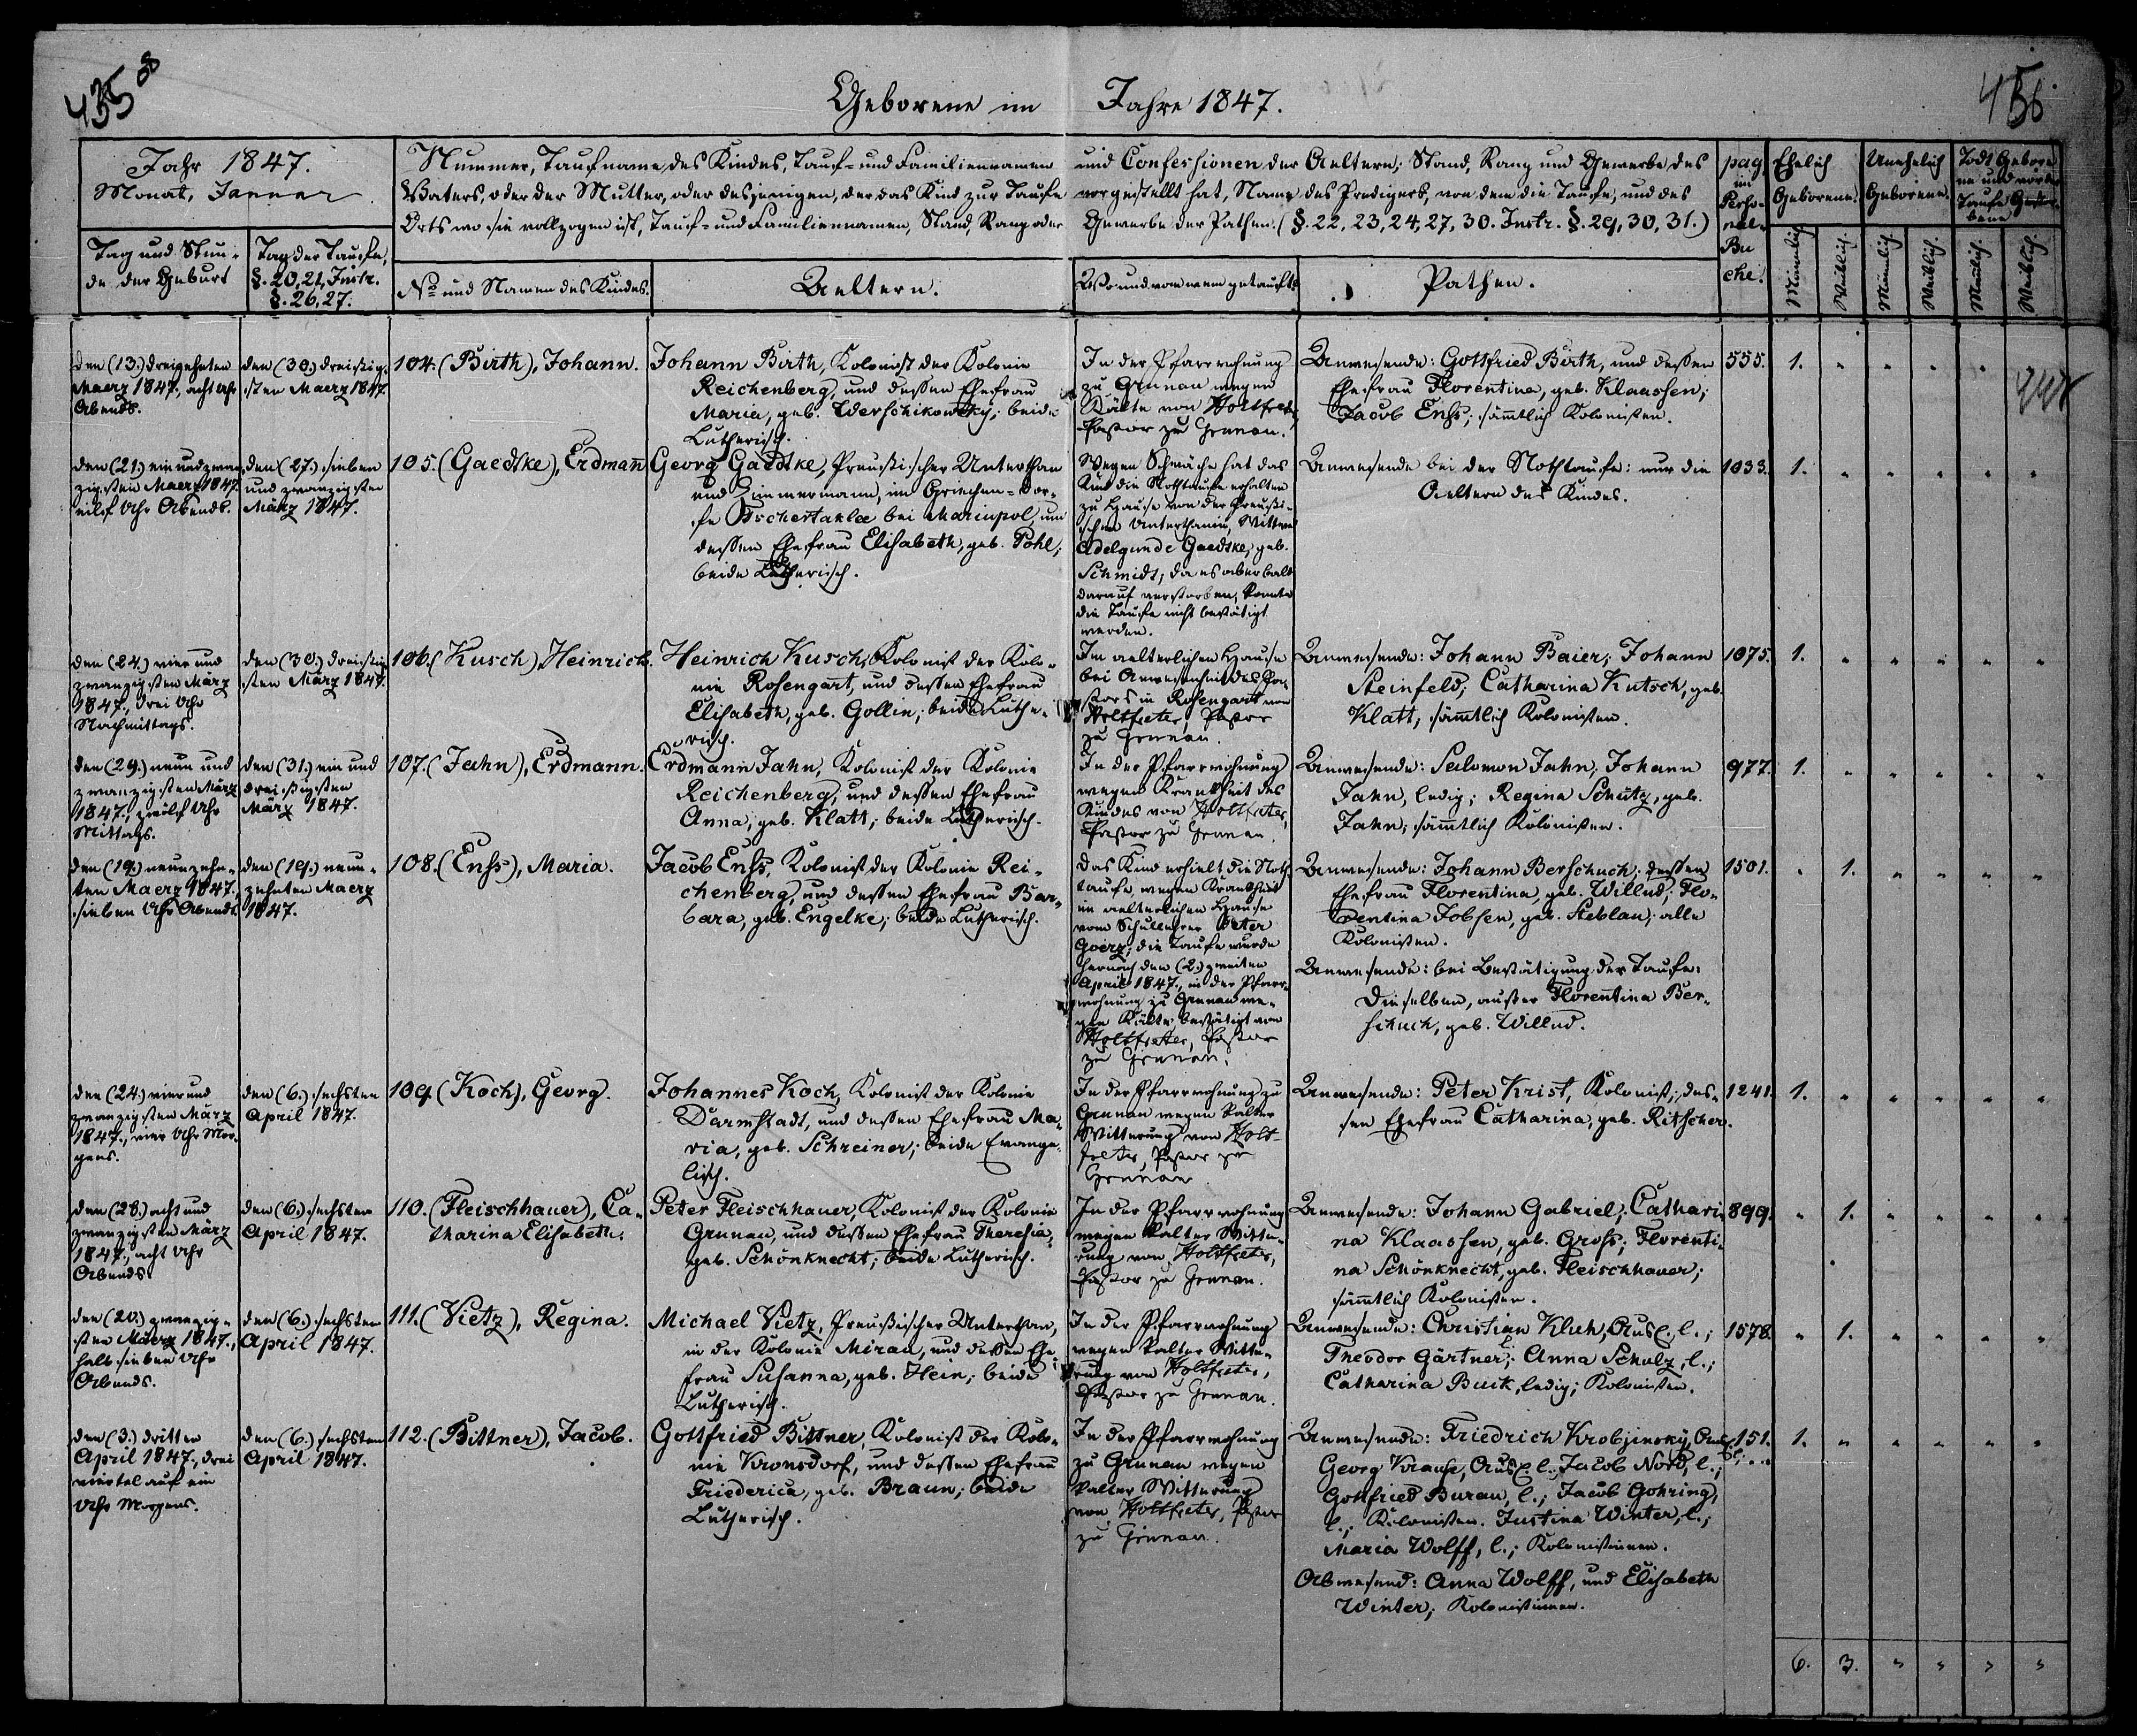 435
456
Geborene im Jahre 1847.
Jahr 1847.
Monat, Januar
Tag und Stun-
de der Geburt
Tag der Taufe,
§. 20, 21, Instr.
§. 26, 27.
Nummer, Taufname des Kindes, Tauf- und Familiennamen und Confessionen der Aeltern; Stand, Rang und Gewerbe des
Vaters, oder der Mutter, oder desjenigen, der das Kind zur Taufe vorgestellt hat, Name des Predigers, von dem die Taufe, und des
Orts wo sie vollzogen ist, Tauf- und Familiennamen, Stand, Rang oder Gewerbe der Pathen. (§. 22, 23, 24, 27, 30. Instr. §. 29, 30, 31.)
No und Namen des Kindes.
Aeltern.
Wo und von wem getauft?
Pathen.
pag
im
Perso-
nal-
Bu
che.
Ehelich
Geborene.
Unehelich
Geborene.
Todt Gebore
ne und vor der
Taufe Gestor-
bene
Männlich.
Weiblich.
Männlich.
Weiblich.
Männlich.
Weiblich.
den (13.) dreizehnten
Maerz 1847, acht Uhr
Abends.
den (30.) dreißig-
sten Maerz 1847.
104. (Birth), Johann.
Johann Birth, Kolonist der Kolonie
Reichenberg, und dessen Ehefrau
Maria, geb. Werschikowsky; beide
Lutherisch.
In der Pfarrwohnung
zu Grunau wegen
Kälte von Holtfreter,
Pastor zu Grunau.
Anwesende: Gottfried Birth, und dessen
Ehefrau Florentina, geb. Klaassen;
Jacob Enß; sämtlich Kolonisten.
555.
1. " " " "
den (21.) ein und zwan-
zigsten Maerz 1847.
eilf Uhr Abends.
den (27.) sieben
und zwanzigsten
März 1847.
105. (Gaedtke), Erdmann
Georg Gaedtke, Preußischer Unterthan
und Zimmermann, im Griechen-Dor-
fe Tschertaklee bei Mariupol, und
dessen Ehefrau Elisabeth, geb. Pohl;
beide Lutherisch.
Wegen Schwäche hat das
Kind die Nothtaufe erhalten
zu Hause von der Preußi-
schen Unterthanin, Wittwe
Adelgunde Gaedtke, geb.
Schmidt; da es aber bald
darauf verstorben, konnte
die Taufe nicht bestätigt
werden.
Anwesende bei der Nothtaufe: nur die
Aeltern des Kindes.
1033.
1. " " " " "
den (24.) vier und
zwanzigsten März
1847., drei Uhr
Nachmittags.
den (30.) dreißig-
sten März 1847.
106. (Kusch), Heinrich.
Heinrich Kusch, Kolonist der Kolo-
nie Rosengart, und dessen Ehefrau
Elisabeth, geb. Gollin; beide Luthe-
risch.
Im aelterlichen Hause
bei Anwesenheit des Pa-
stors in Rosengart von
Holtfreter, Pastor
zu Grunau.
Anwesende: Johann Baier; Johann
Steinfeld; Catharina Kutsch, geb.
Klatt; sämtlich Kolonisten.
1075.
1. " " " " "
den (29.) neun und
zwanzigsten März
1847., zwölf Uhr
Mittags.
den (31.) ein und
dreißigsten
März 1847.
107. (Jahn), Erdmann.
Erdmann Jahn, Kolonist der Kolonie
Reichenberg, und dessen Ehefrau
Anna, geb. Klatt; beide Lutherisch.
In der Pfarrwohnung
wegen Krankheit des
Kindes von Holtfreter,
Pastor zu Grunau
Anwesende: Salomon Jahn; Johann
Jahn, ledig; Regina Schutz, geb.
Jahn; sämtlich Kolonisten.
977.
1. " " " " "
den (19.) neunzehn-
ten Maerz 1847.,
sieben Uhr Abends
den (19.) neun-
zehnten Maerz
1847.
108. (Enß), Maria.
Jacob Enß, Kolonist der Kolonie Rei-
chenberg, und dessen Ehefrau Bar-
bara, geb. Engelke; beide Lutherisch.
Das Kind erhielt die Noth-
taufe wegen Krankheit
im aelterlichen Hause
vom Schullehrer Peter
Goerz; die Taufe wurde
hernach den (2.) zweiten
April 1847., in der Pfarr-
wohnung zu Grunau we-
gen Kälte bestätigt von
Holtfreter, Pastor
zu Grunau.
Anwesende: Johann Berschuch; dessen
Ehefrau Florentina, geb. Willud; Flo-
rentina Jobsen, geb. Steblau; alle
Kolonisten.
Anwesende: bei Bestätigung der Taufe:
Dieselben, außer Florentina Ber-
schuch, geb. Willud.
1501.
" 1. " " " "
den (24.) vier und
zwanzigsten März
1847., vier Uhr Mor-
gens.
den (6.) sechsten
April 1847.
109. (Koch), Georg.
Johannes Koch, Kolonist der Kolonie
Darmstadt, und dessen Ehefrau Ma-
ria, geb. Schreiner; beide Evange-
lisch.
In der Pfarrwohnung zu
Grunau wegen kalter
Witterung von Holt-
freter, Pastor zu
Grunau
Anwesende: Peter Krist, Kolonist; des-
sen Ehefrau Catharina, geb. Ritscher.
1241.
1. " " " " "
den (28.) acht und
zwanzigsten März
1847., acht Uhr
Abends.
den (6.) sechsten
April 1847.
110. (Fleischhauer), Ca-
tharina Elisabeth.
Peter Fleischhauer, Kolonist der Kolonie
Grunau, und dessen Ehefrau Theresia,
geb. Schönknecht; beide Lutherisch.
In der Pfarrwohnung
wegen kalter Witte-
rung von Holtfreter,
Pastor zu Grunau.
Anwesende: Johann Gabriel; Cathari-
na Klaassen, geb. Groß; Florenti-
na Schönknecht, geb. Fleischhauer;
sämtlich Kolonisten.
899.
" 1. " " " "
den (20.) zwanzig-
sten Maerz 1847.,
halb sieben Uhr
Abends.
den (6.) sechsten
April 1847.
111. (Vietz), Regina.
Michael Vietz, Preußischer Unterthan,
in der Kolonie Mirau, und dessen Ehe-
frau Susanna, geb. Hein; beide
Lutherisch.
In der Pfarrwohnung
wegen kalter Witte-
rung von Holtfreter,
Pastor zu Grunau.
Anwesende: Christian Kluh, l.;
Theodor Gärtner; Anna Schulz, l.;
Catharina Buik, ledig; Kolonisten.
1578.
" 1. " " " "
den (3.) dritten
April 1847., drei
viertel auf ein
Uhr Morgens.
den (6.) sechsten
April 1847.
112. (Bittner), Jacob.
Gottfried Bittner, Kolonist der Kolo-
nie Kronsdorf, und dessen Ehefrau
Friederica, geb. Braun; beide
Lutherisch.
In der Pfarrwohnung
zu Grunau wegen
kalter Witterung
von Holtfreter, Pastor
zu Grunau.
Anwesende: Friedrich Krobjinsky,
Georg Krause, l.; Jacob Nord, l.;
Gottfried Burau, l.; Jacob Gohring,
l.; Kolonisten. Justina Winter, l.;
Maria Wolff, l.; Kolonistinnen.
Abwesend: Anna Wolff, und Elisabeth
Winter; Kolonistinnen.
151.
1. " " " " "
6. 3. " " " "